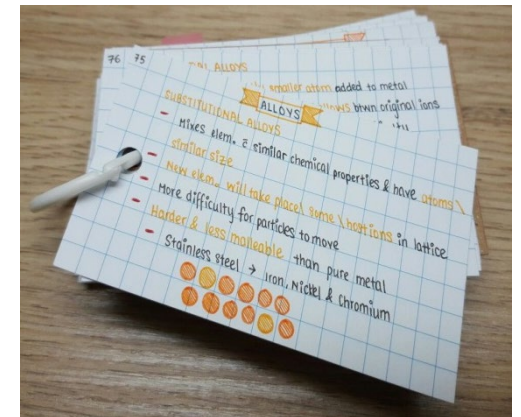 76
75
ALLOYS
smaller atom added to metal
btwn original ions
ALLOYS
SUBSTITUTIONAL ALLOYS
- Mixes elem. c̄ similar chemical properties & have atoms \
similar size
- New elem. will take place\ some \ host ions in lattice
- More difficulty for particles to move
- Harder & less malleable than pure metal
- Stainless steel → Iron, Nickel & Chromium